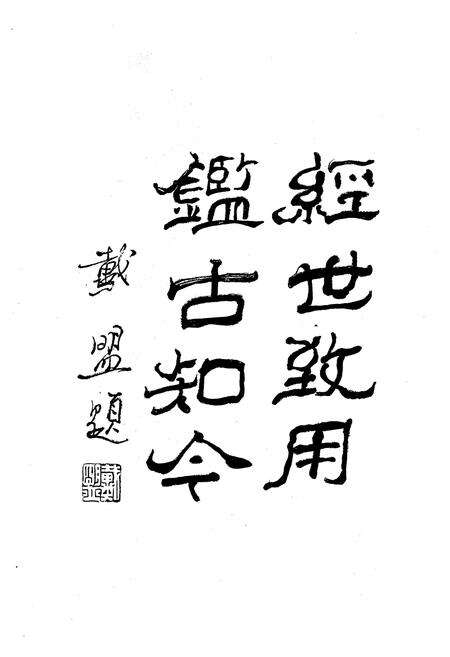 經世致用
鑑古知今
戴盟題